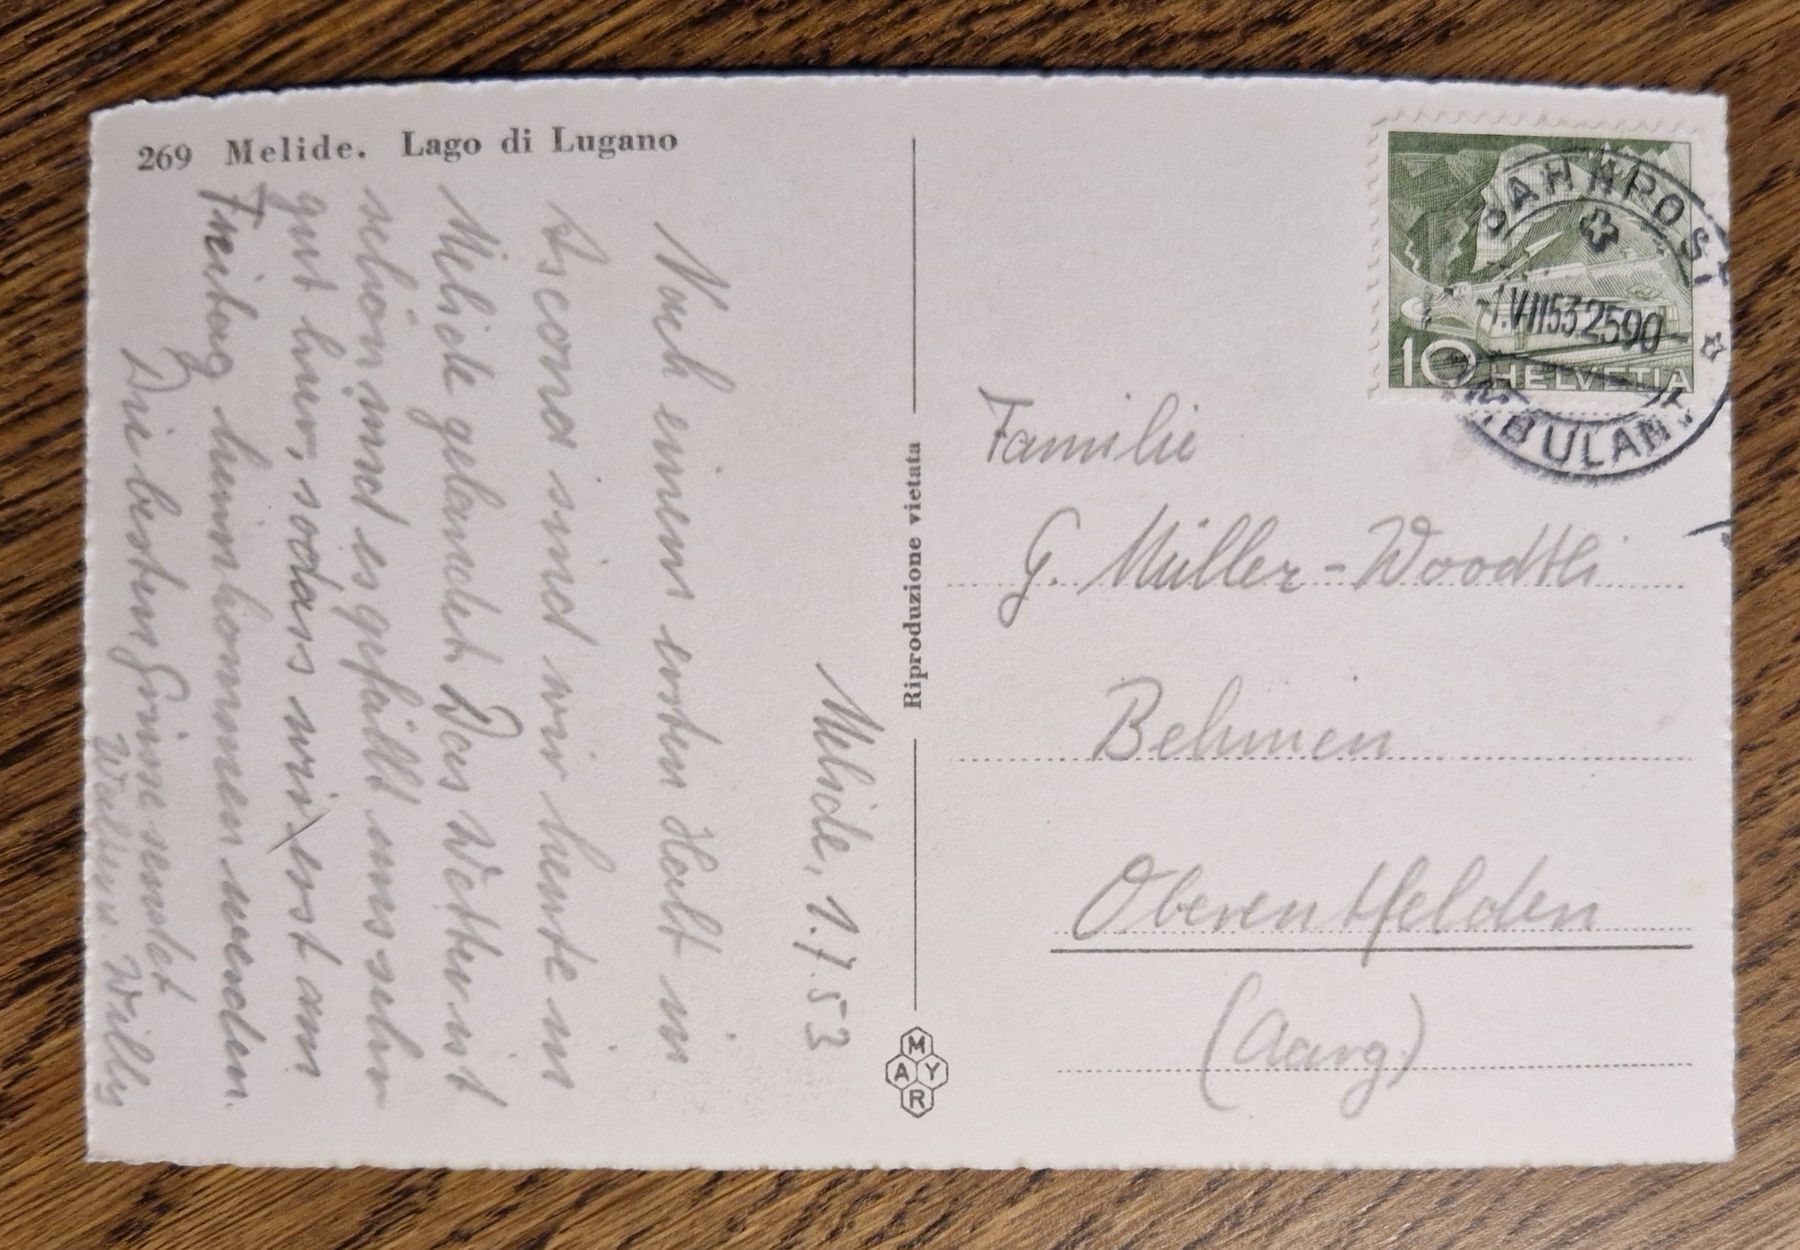 269 Melide. Lago di Lugano
Melide, 1.7.53
Nach einem ersten Halt in
Ascona sind wir heute in
Melide gelandet. Das Wetter ist
schön und es gefällt uns sehr
gut hier, sodass wir erst am
Freitag heimkommen werden.
Die besten Grüsse sendet
Willy
Riproduzione vietata
MAYR
BAHNPOST
-1.VII53.2590-
AMBULANT
10 HELVETIA
Familie
G. Müller-Woodtli
Behmen
Oberentfelden
(Aarg)